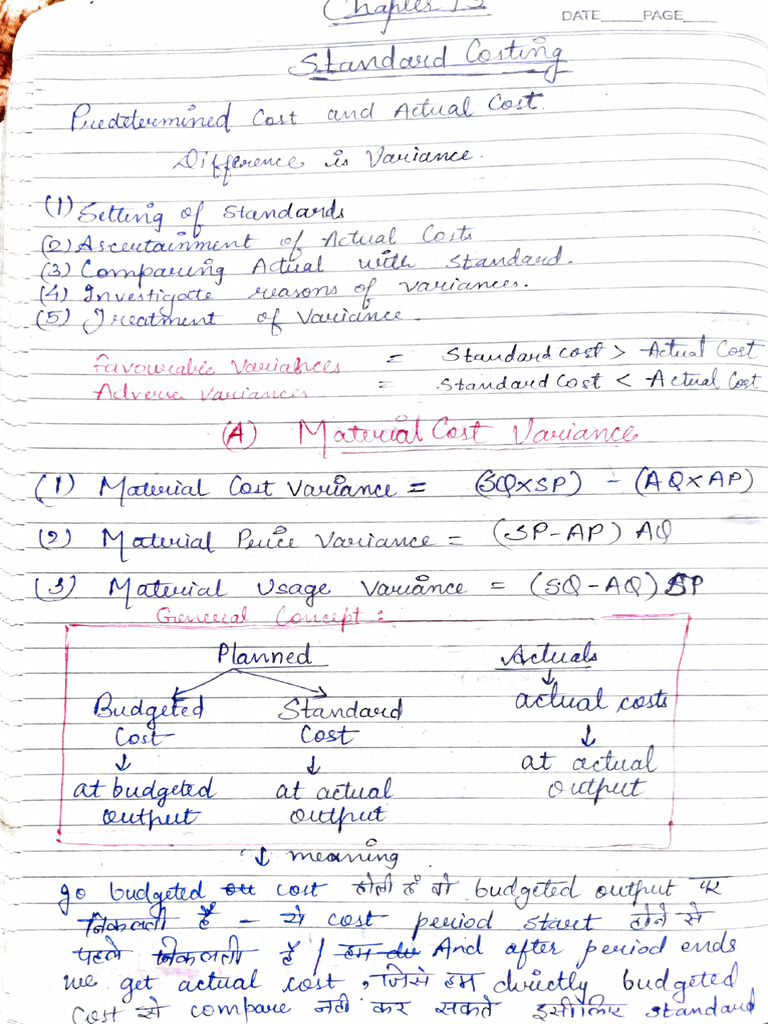 Chapter 13
DATE____PAGE____
Standard Costing
Predetermined Cost and Actual Cost.
Difference is Variance.
(1) Setting of Standards
(2) Ascertainment of Actual Costs
(3) Comparing Actual with Standard.
(4) Investigate reasons of variances.
(5) Treatment of Variance.
Favourable Variances = Standard cost > Actual Cost
Adverse Variances = Standard Cost < Actual Cost
(A) Material Cost Variance
(1) Material Cost Variance = (SQ×SP) - (AQ×AP)
(2) Material Price Variance = (SP-AP) AQ
(3) Material Usage Variance = (SQ-AQ) SP
General Concept:
Planned Actuals
Budgeted Standard actual costs
Cost Cost
at actual
at budgeted at actual output
output output
↓ meaning
jo budgeted cost होती है वो budgeted output पर
निकलती है - ये cost period start होने से
पहले निकलती है | And after period ends
we get actual cost, जिसे हम directly budgeted
cost से compare नही कर सकते इसीलिए standard